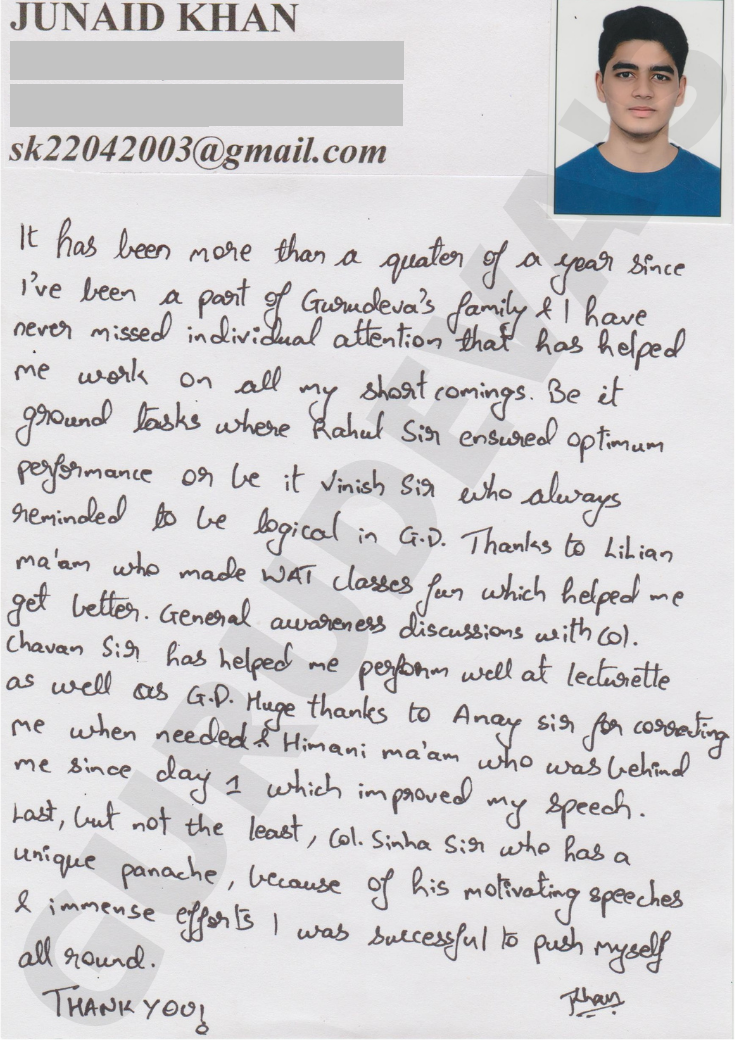 JUNAID KHAN
sk22042003@gmail.com
It has been more than a quater of a year since
I've been a part of Gurudeva's family & I have
never missed individual attention that has helped
me work on all my shortcomings. Be it
ground tasks where Rahul Sir ensured optimum
performance or be it Vinish Sir who always
reminded to be logical in G.D. Thanks to Lilian
ma'am who made WAT classes fun which helped me
get better. General awareness discussions with Col.
Chavan Sir has helped me perform well at lecturette
as well as G.D. Huge thanks to Anay sir for correcting
me when needed & Himani ma'am who was behind
me since day 1 which improved my speech.
Last, but not the least, Col. Sinha Sir who has a
unique panache, because of his motivating speeches
& immense efforts I was successful to push myself
all round.
THANK YOU!
JKhan
GURUDEVAS